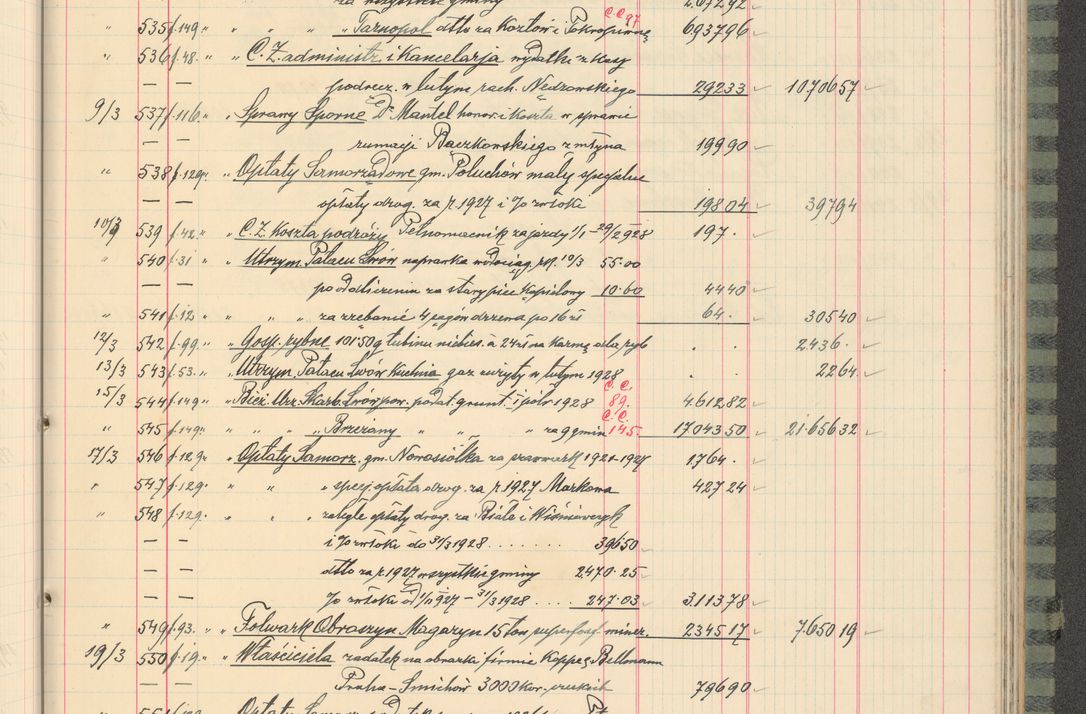 " 535 f.149. " " " " Tarnopol dtto za Kozłów i C.C. 97 693796
" 536 f.48. " " C.Z. administr. i Kancelarja wydatki z kasy
— — podręcz. w lutym rach. Nedzowskiego 29233 1070657
9/3 537 f.116. " " Sprawy Sporne Dr Mantel honor. i koszta w sprawie
— — rumacji Baczkowskiego z młyna 19990
" 538 f.129. " " Opłaty Samorządowe gm. Poluchów mały specjalne
— — opłaty drog. za r. 1927 i % zwłoki 19804 39794
10/3 539 f.42. " " C.Z. Koszta podróży Pełnomocnik zajazdy 1/1-29/2 928 197.
" 540 f.31 " Utrzym. Pałacu Lwów naprawka wodociąg. 10/3 55.00
— — po odliczeniu za stary piec kąpielowy 10.60 4440
" 541 f.12. " " " za zrębanie 4 sągów drzewa po 16 zł 64. 30540
12/3 542 f.99. " " Gosp. rybne 10150 łubinu niebies. à 24 zł na karmę dla ryb . . 2436.
13/3 543 f.53. " " Utrzym. Pałacu Lwów Kuchnia gaz zużyty w lutym 1928 . . 2264.
15/3 544 f.149 " " Bież. Urz. Skarb. Lwów pow. podat. grunt. I półr 1928 C.C. 89. 461282
" 545 f.149. " " " " Brzeżany " " " za 9 gmin C.C. 145. 1704350 2165632
17/3 546 f.129. " " Opłaty Samorz. gm. Nowosiółka za szarwark 1924-1927 1764.
" 547 f.129. " " " specj. opłata drog. za r. 1927 Markowa 42724
" 548 f.129. " " " zaległe opłaty drog. za Białe i
— — i % zwłoki do 31/3 1928 . . . . . . . 39650
— — dtto za r. 1927 wszystkie gminy 2470.25
— — % zwłoki od 1/11 1927 — 31/3 1928 . . . . 247.03 311378
" 549 f.93. " " Folwark Obroszyn Magazyn 15 ton superfosf. miner. 234517 765019
19/3 550 f.19. " " Właściciela zadatek na obrazki firmie Koppe & Bellmann
— — Praha-Smichów 3000 Kor. czeskich 79690